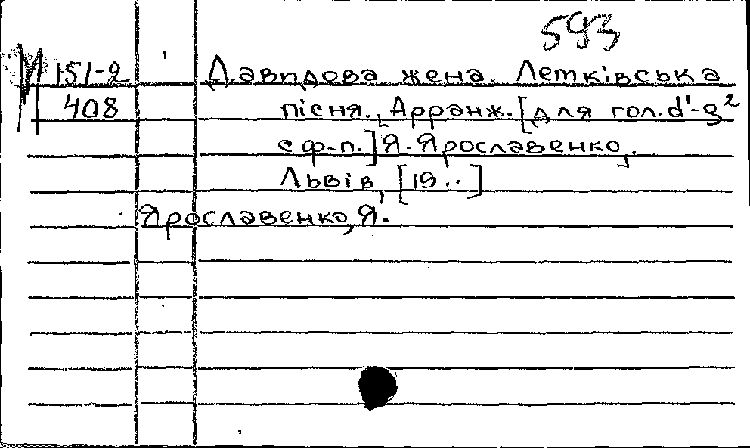 593
У 151-2 Давидова жена. Летківська
408 пісня., Арранж. [для гол. d'-g²
с ф-п.] Я. Ярославенко,.
Львів, [19..]
Ярославенко, Я.